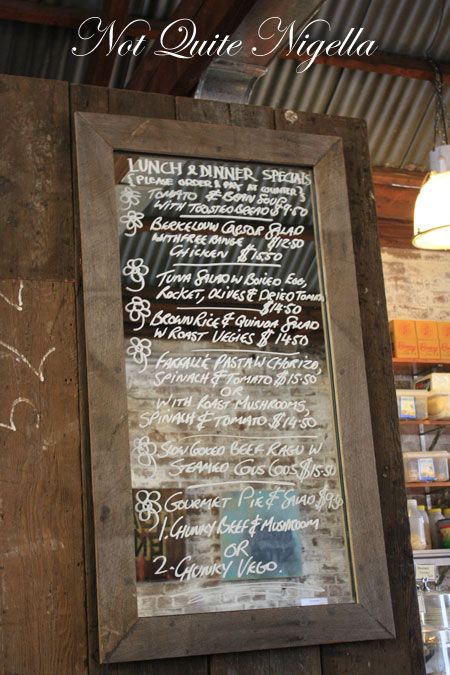 Not Quite Nigella
LUNCH & DINNER SPECIALS
{PLEASE ORDER & PAY AT COUNTER}
TOMATO & BEAN SOUP
WITH TOASTED BREAD $9.50
BERKELOUW CAESAR SALAD
WITH FREE RANGE $12.50
CHICKEN $15.50
TUNA SALAD W BOILED EGG,
ROCKET, OLIVES & DRIED TOMATO
$14.50
BROWN RICE & QUINOA SALAD
W ROAST VEGIES $14.50
FARFALLE PASTA W CHORIZO,
SPINACH & TOMATO $15.50
OR
WITH ROAST MUSHROOMS,
SPINACH & TOMATO $14.50
SLOW COOKED BEEF RAGU W
STEAMED COUS COUS $15.50
GOURMET PIE & SALAD
1. CHUNKY BEEF & MUSHROOM
OR
2. CHUNKY VEGO.